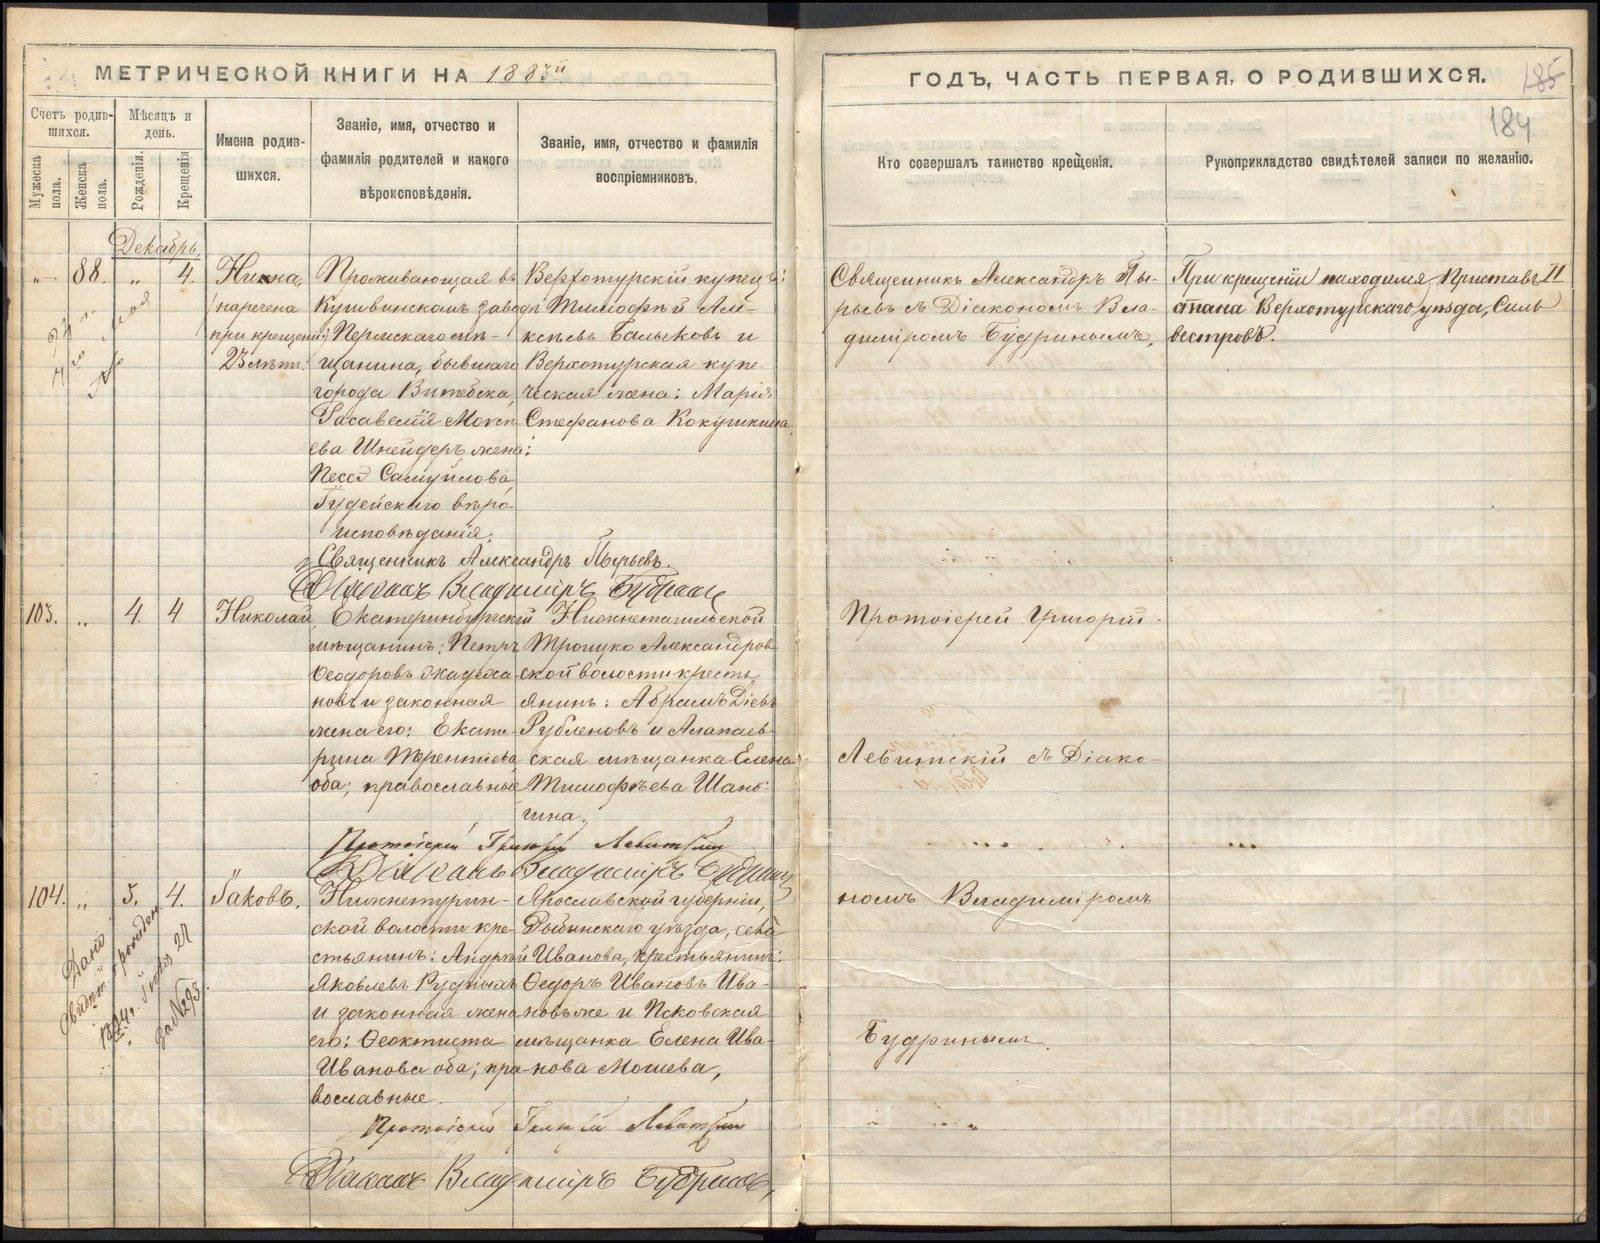 МЕТРИЧЕСКОЙ КНИГИ НА 1883й
ГОДЪ, ЧАСТЬ ПЕРВАЯ, О РОДИВШИХСЯ.
185
184
Счетъ родив-
шихся.
Мужеска пола.
Женска пола.
Мѣсяцъ и
день.
Рожденія.
Крещенія
Имена родив-
шихся.
Званіе, имя, отчество и
фамилія родителей и какого
вѣроксповѣданія.
Званіе, имя, отчество и фамилія
воспріемниковъ.
Кто совершалъ таинство крещенія.
Рукоприкладство свидѣтелей записи по желанію.
Декабрь.
„ 88. „ 4.
Нина,
(наречена
при крещеніи)
23 лѣтъ.
Проживающая въ
Кушвинскомъ заводѣ
Пермскаго мѣ-
щанина, бывшаго
города Витебска,
Моисе-
ева Шнейдеръ жена:
Песся Самуйлова,
Іудейскаго вѣро-
исповѣданія.
Верхотурскій купецъ:
Тимофей Але-
ксѣевъ Балыковъ и
Верхотурская купе-
ческая жена: Марія
Стефанова Кокушкина.
Священникъ Александръ Пырьевъ.
Діаконъ Владиміръ Будринъ
Священникъ Александръ Пы-
рьевъ съ Діакономъ Вла-
диміромъ Будринымъ.
При крещеніи находился Приставъ II
стана Верхотурскаго уѣзда, Силь-
вестровъ.
103. „ 4. 4
Николай
Екатеринбургскій
мѣщанинъ: Петръ
Ѳеодоровъ
новъ и законная
жена его: Екате-
рина Терентьева
оба; православные
Нижнетагильской
Троицко Александров-
ской волости кресть-
янинъ: Абрамъ Діевъ
Рубленовъ и Алапаев-
ская мѣщанка Елена
Тимофѣева Шань-
гина.
Протоіерей Григорій Левитскій
Діаконъ Владиміръ Будринъ
Протоіерей Григорій
Левитскій съ Діако-
104. „ 5. 4.
Іаковъ.
Нижнетурин-
ской волости кре-
стьянинъ: Андрей
Яковлевъ Рудныхъ
и законная жена
его: Ѳеоктиста
Иванова оба; пра-
вославные.
Ярославской губерніи,
Рыбинскаго уѣзда, села
Иванова, крестьянинъ:
Ѳедоръ Ивановъ Ива-
новъ же и Псковская
мѣщанка Елена Ива-
нова Мошева,
номъ Владиміромъ
Будринымъ.
Дано
Свидѣт. о рожден.
27
за № 293.
Протоіерей Григорій Левитскій
Діаконъ Владиміръ Будринъ,